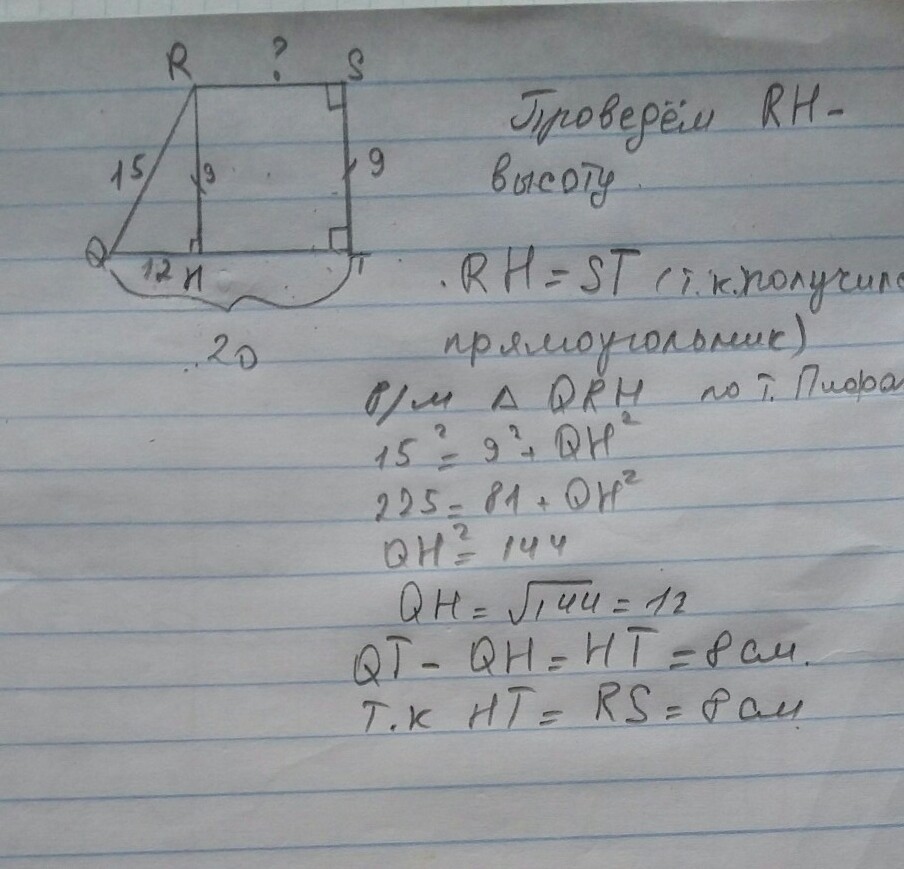 R ? S
15 9 9
Q 12 H T
20
Проведём RH -
высоту.
RH = ST (т.к. получил
прямоугольник)
Р/м Δ QRH по т. Пифа
15² = 9² + QH²
225 = 81 + QH²
QH² = 144
QH = √144 = 12
QT - QH = HT = 8 см.
Т.к HT = RS = 8 см